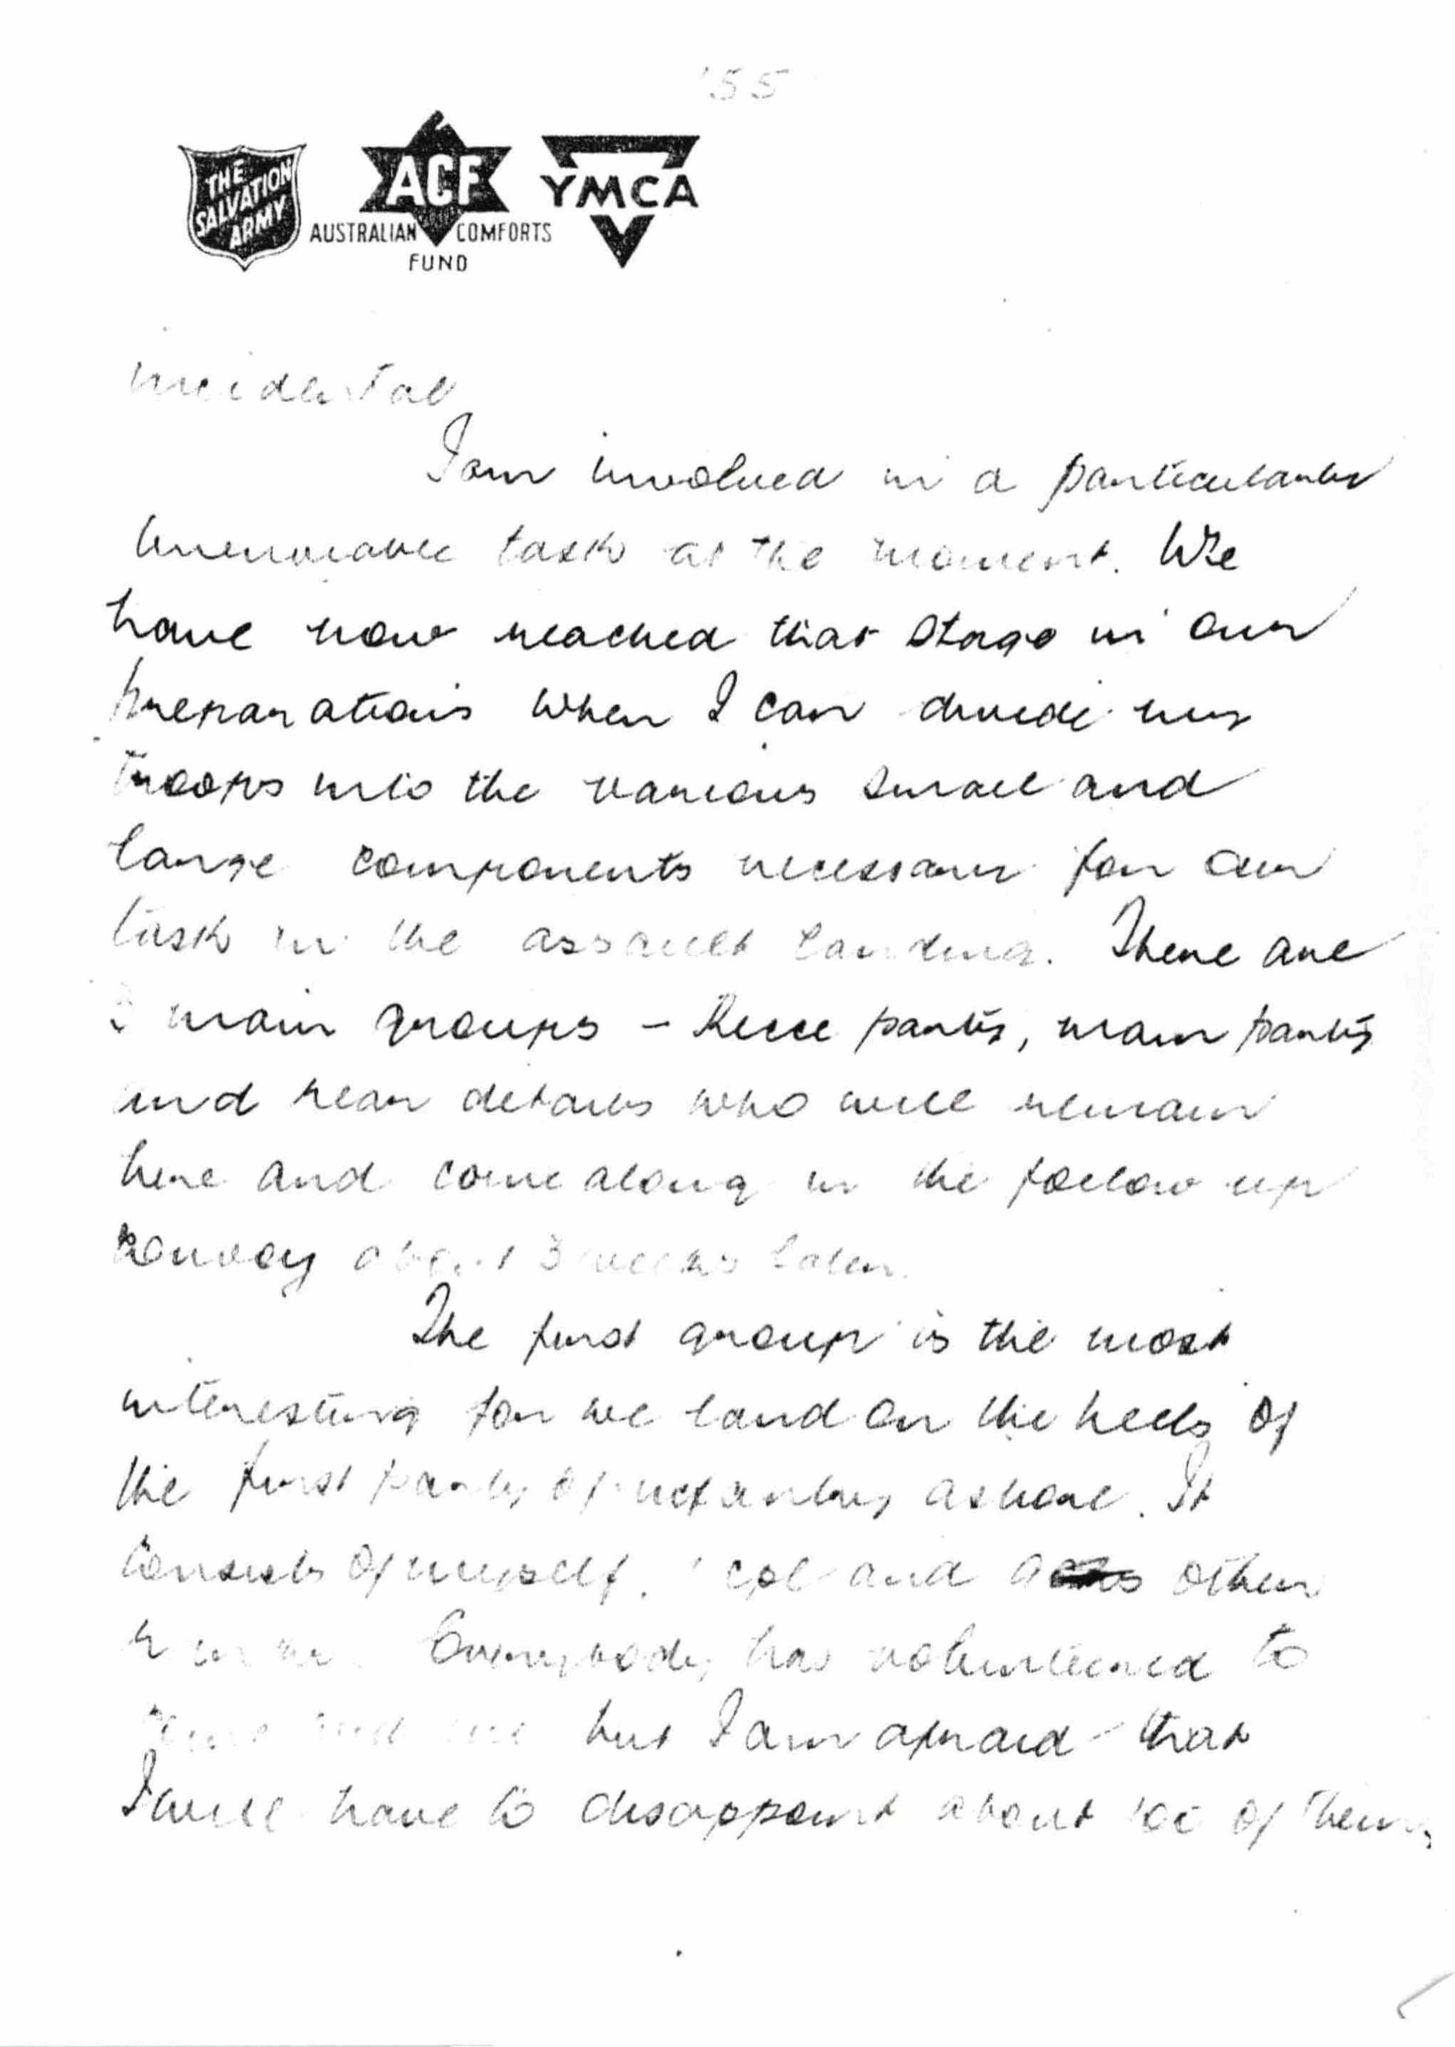 '55
THE
SALVATION
ARMY
ACF
YMCA
AUSTRALIAN COMFORTS
FUND
incidental
I am involved in a particularly
unenviable task at the moment. We
have now reached that stage in our
preparations when I can divide my
troops into the various small and
large components necessary for our
task in the assault landing. There are
main groups - Recce party, main party
and rear details who will remain
here and come along in the follow up
convoy about 3 weeks later.
The first group is the most
interesting for we land on the heels of
the first party of infantry ashore. It
consists of myself. 1 cpl and other
Everybody has volunteered to
but I am afraid that
I will have to disappoint about 100 of them,